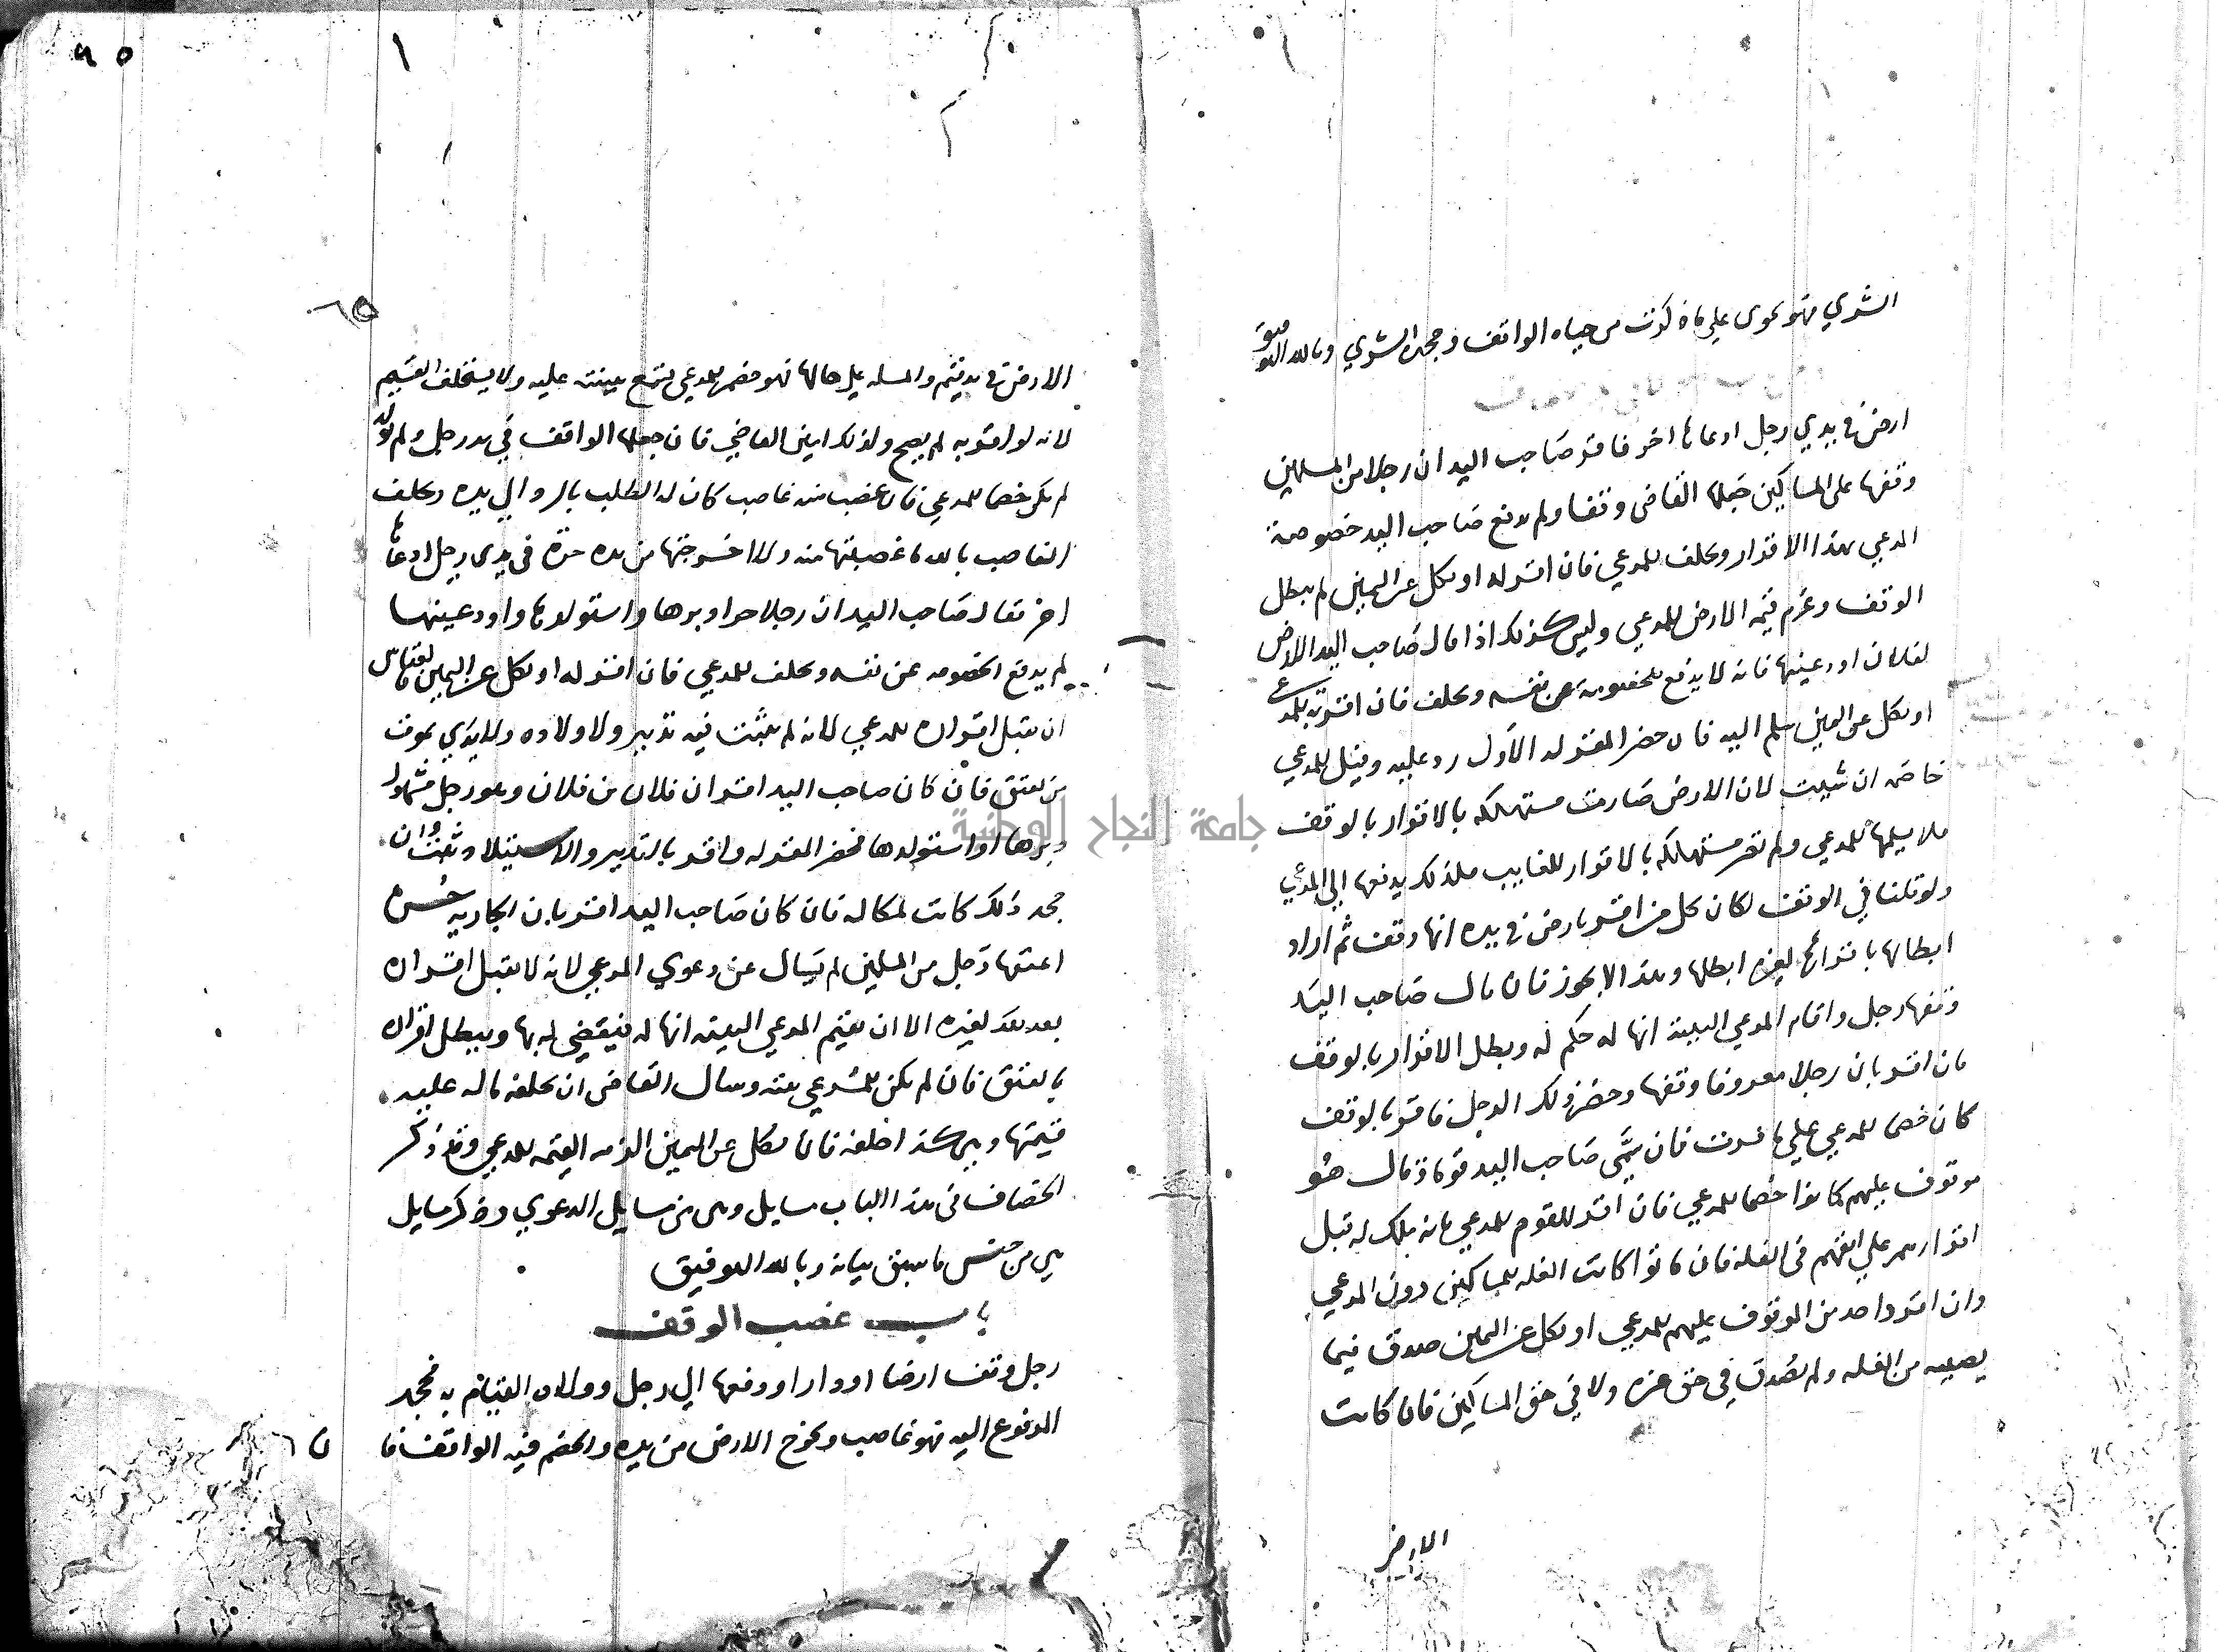 الشري فهو يجوي علي ما ذكرت من حياه الواقف وجحده الشري وبالله التوفيق
ارض في يدي رجل ادعاها اخر فاقر صاحب اليد ان رجلا من المسلمين
وقفها على المساكين جعلها القاضي وقفا ولم تدفع صاحب اليد خصومة
المدعي بهذا الاقرار ويحلف للمدعي فان اقر له او نكل عن اليمين لم يبطل
الوقف وغرم قيمه الارض للمدعي وليس كذلك اذا قال صاحب اليد الارض
لفلان اودعنيها فانه لا يدفع الخصومة عن نفسه ويحلف فان اقر به للمدعي
او نكل عن اليمين سلم اليه فان حضر المقر له الاول رد عليه وقيل للمدعي
خاصه ان شيت لان الارض صارت مستهلكه بالاقرار بالوقف
فلا يسلمها للمدعي ولم تصر مستهلكه بالاقرار للغايب فلذلك يدفعها الي المدعي
ولو قلنا في الوقف لكان كل من اقر بارض في يده انها وقف ثم اراد
ابطالها باقراره لغيره ابطلها وهذا لا يجوز فان قال صاحب اليد
وقفها رجل واقام المدعي البينة انها له حكم له وبطل الاقرار بالوقف
فان اقر بان رجلا معروفا وقفها وحضر ذلك الرجل فاقر بالوقف
كان خصما للمدعي علي ما فسرت فان سمى صاحب اليد قوما وقال هو
موقوف عليهم كانوا خصما للمدعي فان اقر القوم للمدعي بانه ملك له قبل
اقرارهم علي انفسهم في الغله فان ماتوا كانت الغله للمساكين دون المدعي
وان اقر واحد من الموقوف عليهم للمدعي او نكل عن اليمين صدق فيما
يصيبه من الغله ولم يصدق في حق غيره ولا في حق المساكين فان كانت
الارض
الارض في يد قيم والمسله علي حالها فهو خصم للمدعي يسمع بينته عليه ولا يستحلف القيم
لانه لو اقر به لم يصح ولذلك امين القاضي فان جعلها الواقف في يد رجل ولم يوله
لم يكن خصما للمدعي فان غصب منه غاصب كان له الطلب بالرد الي يده ويحلف
الغاصب بالله ما غصبتها منه ولا اخرجتها من يده حرة في يدي رجل ادعاها
اخر فقال صاحب اليد ان رجلا حرا دبرها واستولدها واودعنيها
لم يدفع الخصومه عن نفسه ويحلف للمدعي فان اقر له او نكل عن اليمين فقياس
ان يقبل اقراره للمدعي لانه لم يثبت فيه تدبير ولا ولاده ولا يدري بموت
من يعتق فان كان صاحب اليد اقر ان فلان بن فلان وهو رجل مشهور
دبرها او استولدها فحضر المقر له واقر بالتدبير والاستيلاد ثبت وان
جحد ذلك كانت لمكاله فان كان صاحب اليد اقر بان الجاريه حره
اعتقها رجل من المسلمين لم يسال عن دعوي المدعي لانه لا يقبل اقراره
بعد لغيره الا ان يقيم المدعي البينه انها له فيقضي له بها ويبطل اقراره
بالعتق فان لم يكن للمدعي بينه وسال القاضي ان يحلفه ماله عليه
قيمتها وبين كذا احلفه فان نكل عن اليمين الزمه القيمه للمدعي وقد ذكر
الخصاف في هذا الباب مسايل وهي من مسايل الدعوي وذكر مسايل
هي من جنس ما سبق بيانه وبالله التوفيق
باب غصب الوقف
رجل وقف ارضا او دارا ودفعها الي رجل وولاه القيام به فجحد
المدفوع اليه فهو غاصب ويخرج الارض من يده والخصم فيه الواقف فا
ن
جامعة النجاح الوطنية